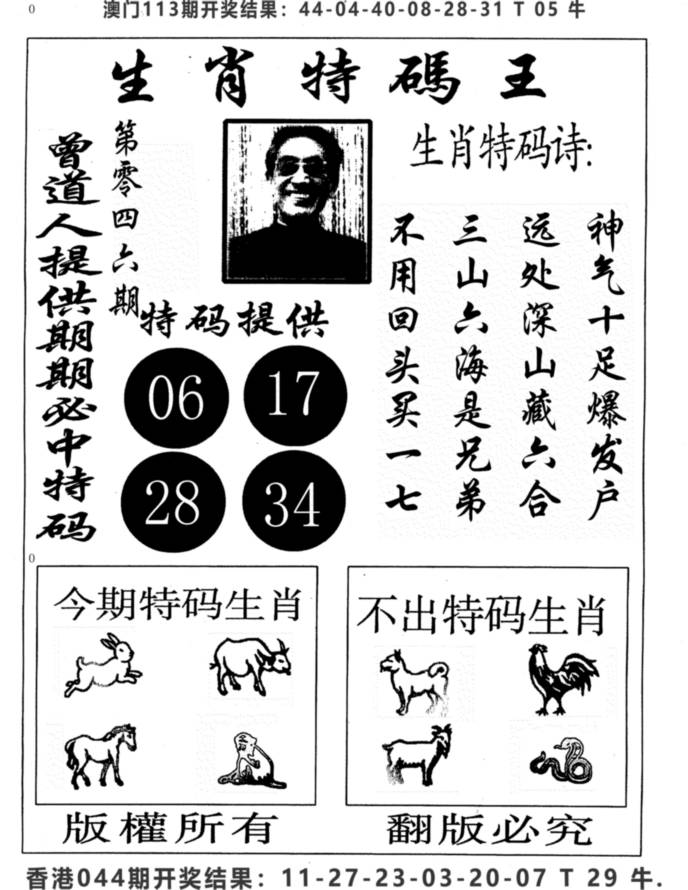 0
澳门113期开奖结果：44-04-40-08-28-31 T 05 牛
生肖特碼王
曾道人提供期期必中特码
第零四六期
生肖特码诗:
神气十足爆发户
远处深山藏六合
三山六海是兄弟
不用回头买一七
特码提供
06 17
28 34
0
今期特码生肖
不出特码生肖
版權所有
翻版必究
香港044期开奖结果：11-27-23-03-20-07 T 29 牛.